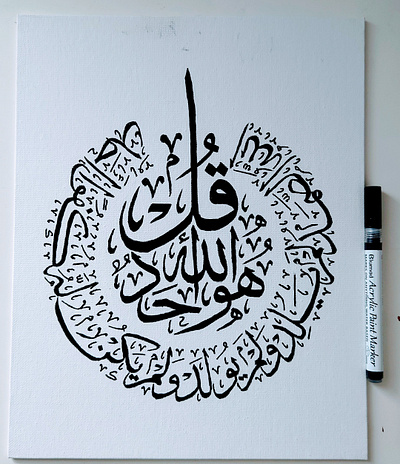 قل
هو الله
احد
الله الصمد لم يلد ولم يولد ولم يكن له كفوا احد
Acrylic Paint Marker